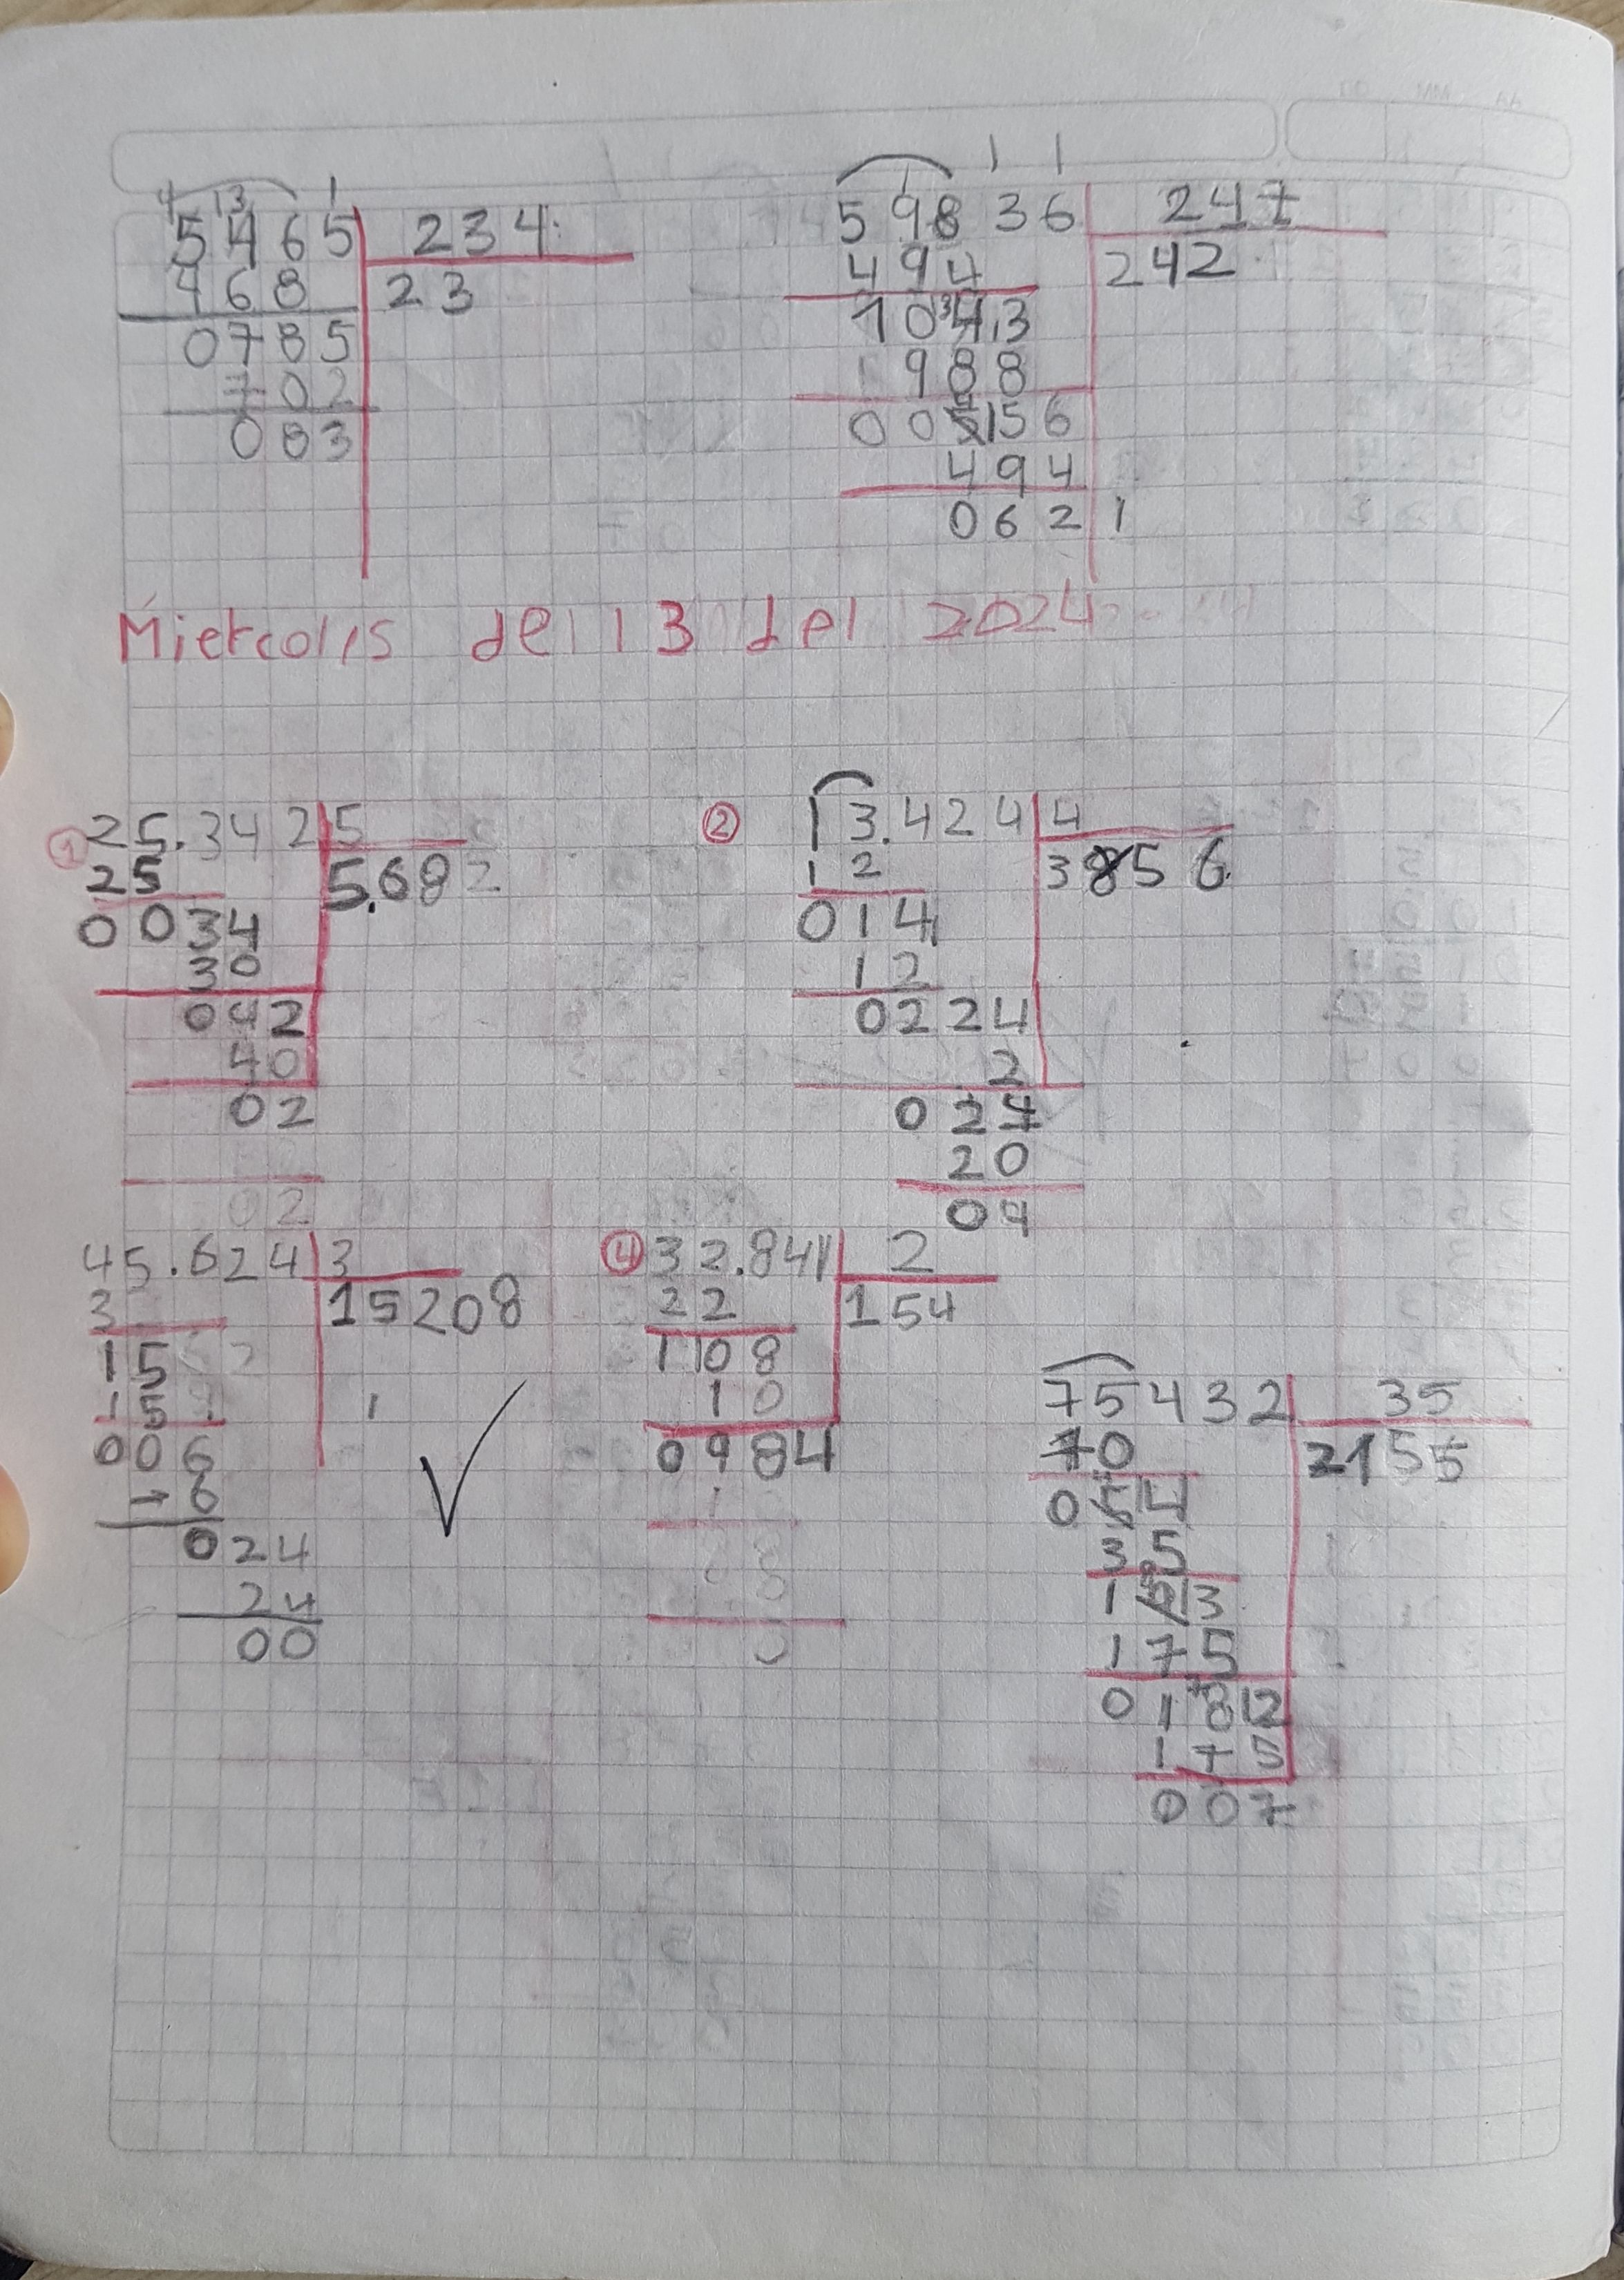 5465 234
468 23
0785
702
083
59836 247
494 242
1043
988
005156
494
0621
Miercolis del 13 del 2024
1 25.342 5
25 5.682
0034
30
042
40
02
02
2 13.424 4
12 3856
014
12
0224
2
024
20
04
45.624 3
3 15208
15
15
006
- 6
024
24
00
4 32.841 2
22 154
1108
10
0984
75432 35
70 2155
054
35
193
175
0182
175
007